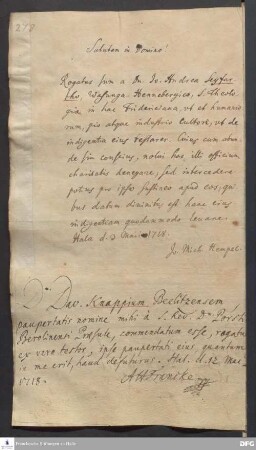 Salutem in Domino!
Rogatus sum a Dn. Jo. Andrea Seyfar-
tho, Wasunga-Hennebergico, S. Theolo-
giæ in hac Fridericiana, ut et humanio-
rum, pio atque industrio Cultore, ut de
indigentia eius testarer. Cuius cum
sim conscius, nolui hoc illi officium
charitatis denegare, sed intercedere
potius pro ipso apud eos, qui-
bus datum divinitus est hanc eius
indigentiam quodammodo levare.
Halæ d. Maii 1718.
Jo. Mich.
Dn. Dav. Knappium, Beelitzensem
paupertatis nomine mihi a S. Rev. Dn. Porst
Berolinensi Præsule, commendatum esse, rogatus
ex vero testor, ipse paupertati eius, quantum
in me erit, haud defuturus. Hal. d. 12. Maii
1718.
AHFrancke
DFG